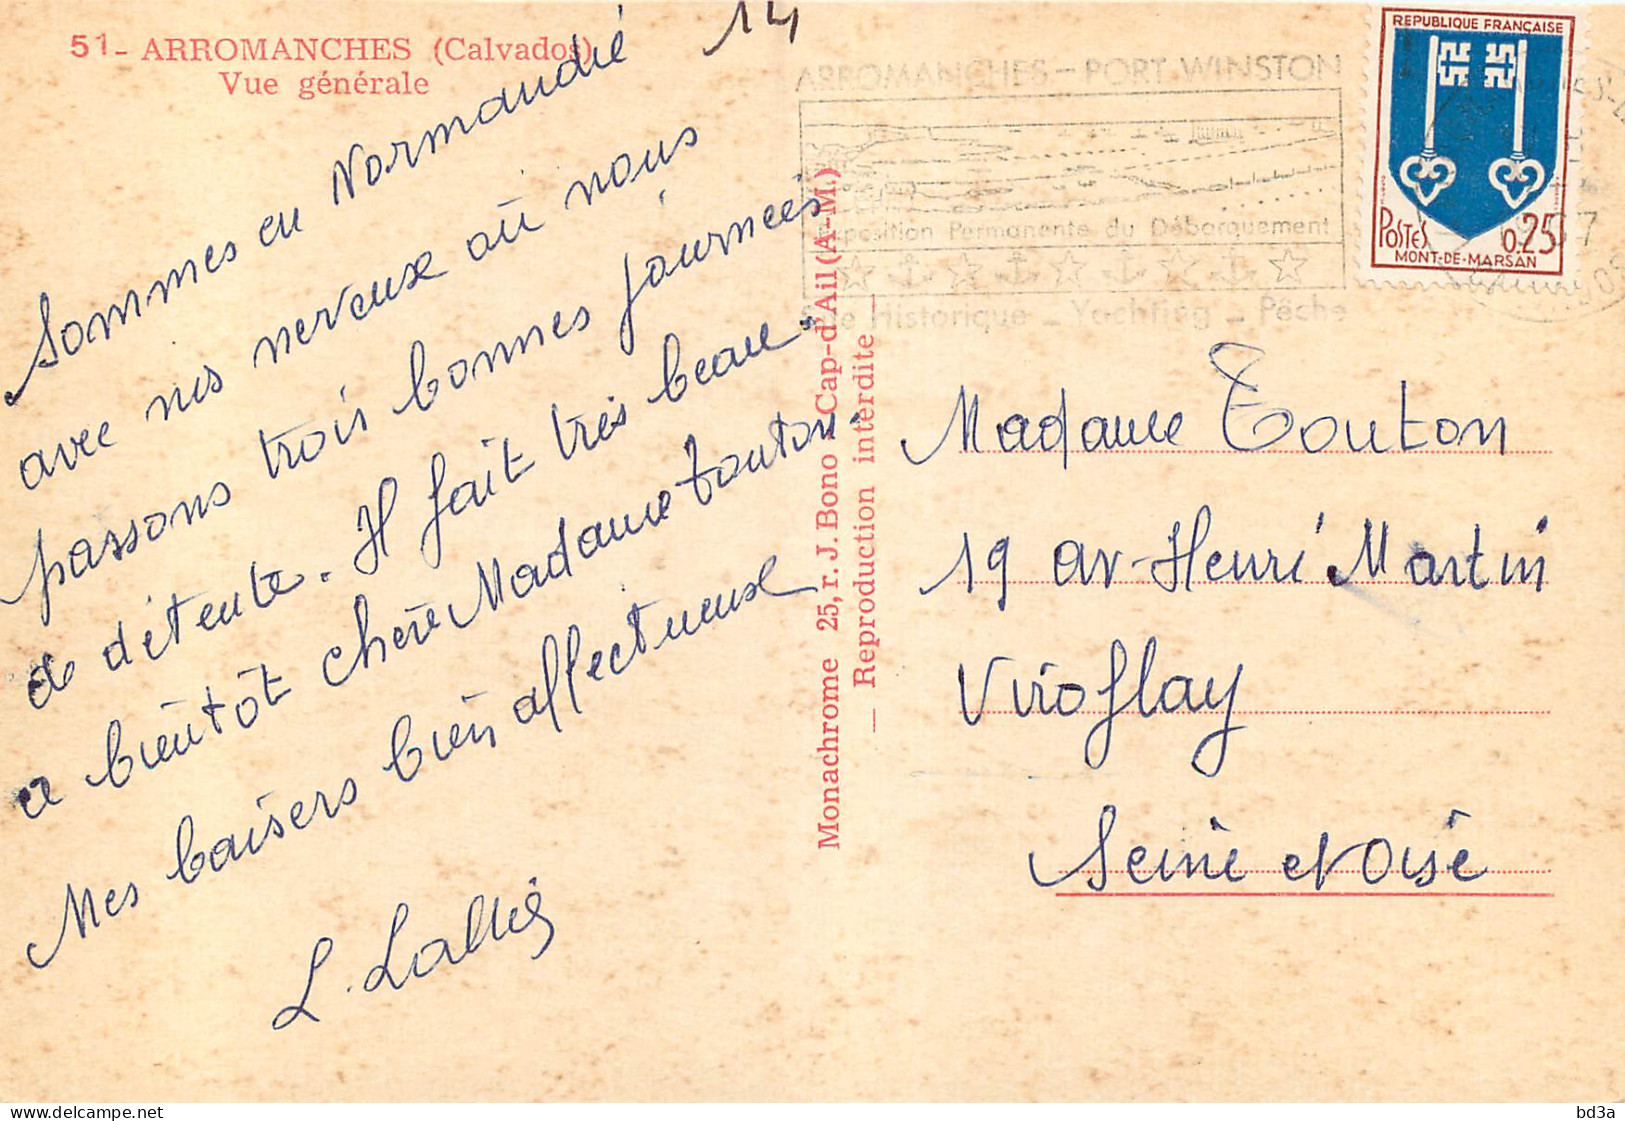 14
51 - ARROMANCHES (Calvados)
Vue générale
Sommes en Normandie
avec nos neveux où nous
passons trois bonnes journées
de détente. Il fait très beau.
a bientôt chère Madame Touton.
Mes baisers bien affectueux
L. Lallié
Monachrome 25, r. J. Bono - Cap-d'Ail (A-M.)
— Reproduction interdite —
ARROMANCHES - PORT WINSTON
Exposition Permanente du Débarquement
Site Historique - Yachting - Pêche
REPUBLIQUE FRANÇAISE
POSTES 0,25
MONT-DE-MARSAN
Madame Touton
19 av. Henri Martin
Viroflay
Seine et Oise
delcampe.net
bd3a